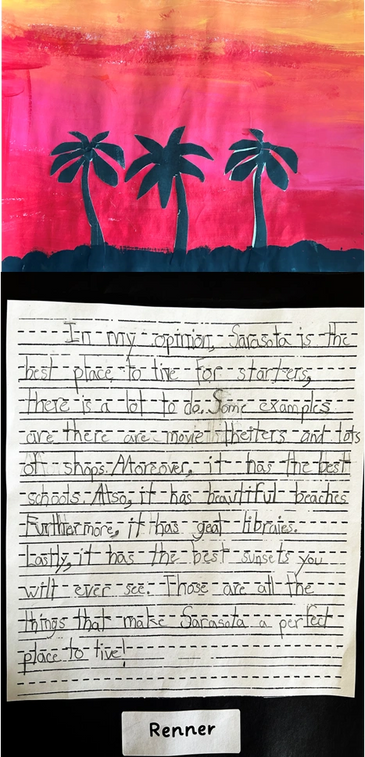 In my opinion, Sarasota is the
best place to live for starters,
there is a lot to do. Some examples
are there are movie theiters and lots
of shops. Moreover, it has the best
schools. Also, it has beautiful beaches.
Furthermore, it has geat libraies.
Lastly, it has the best sunsets you
will ever see. Those are all the
things that make Sarasota a perfect
place to live!
Renner